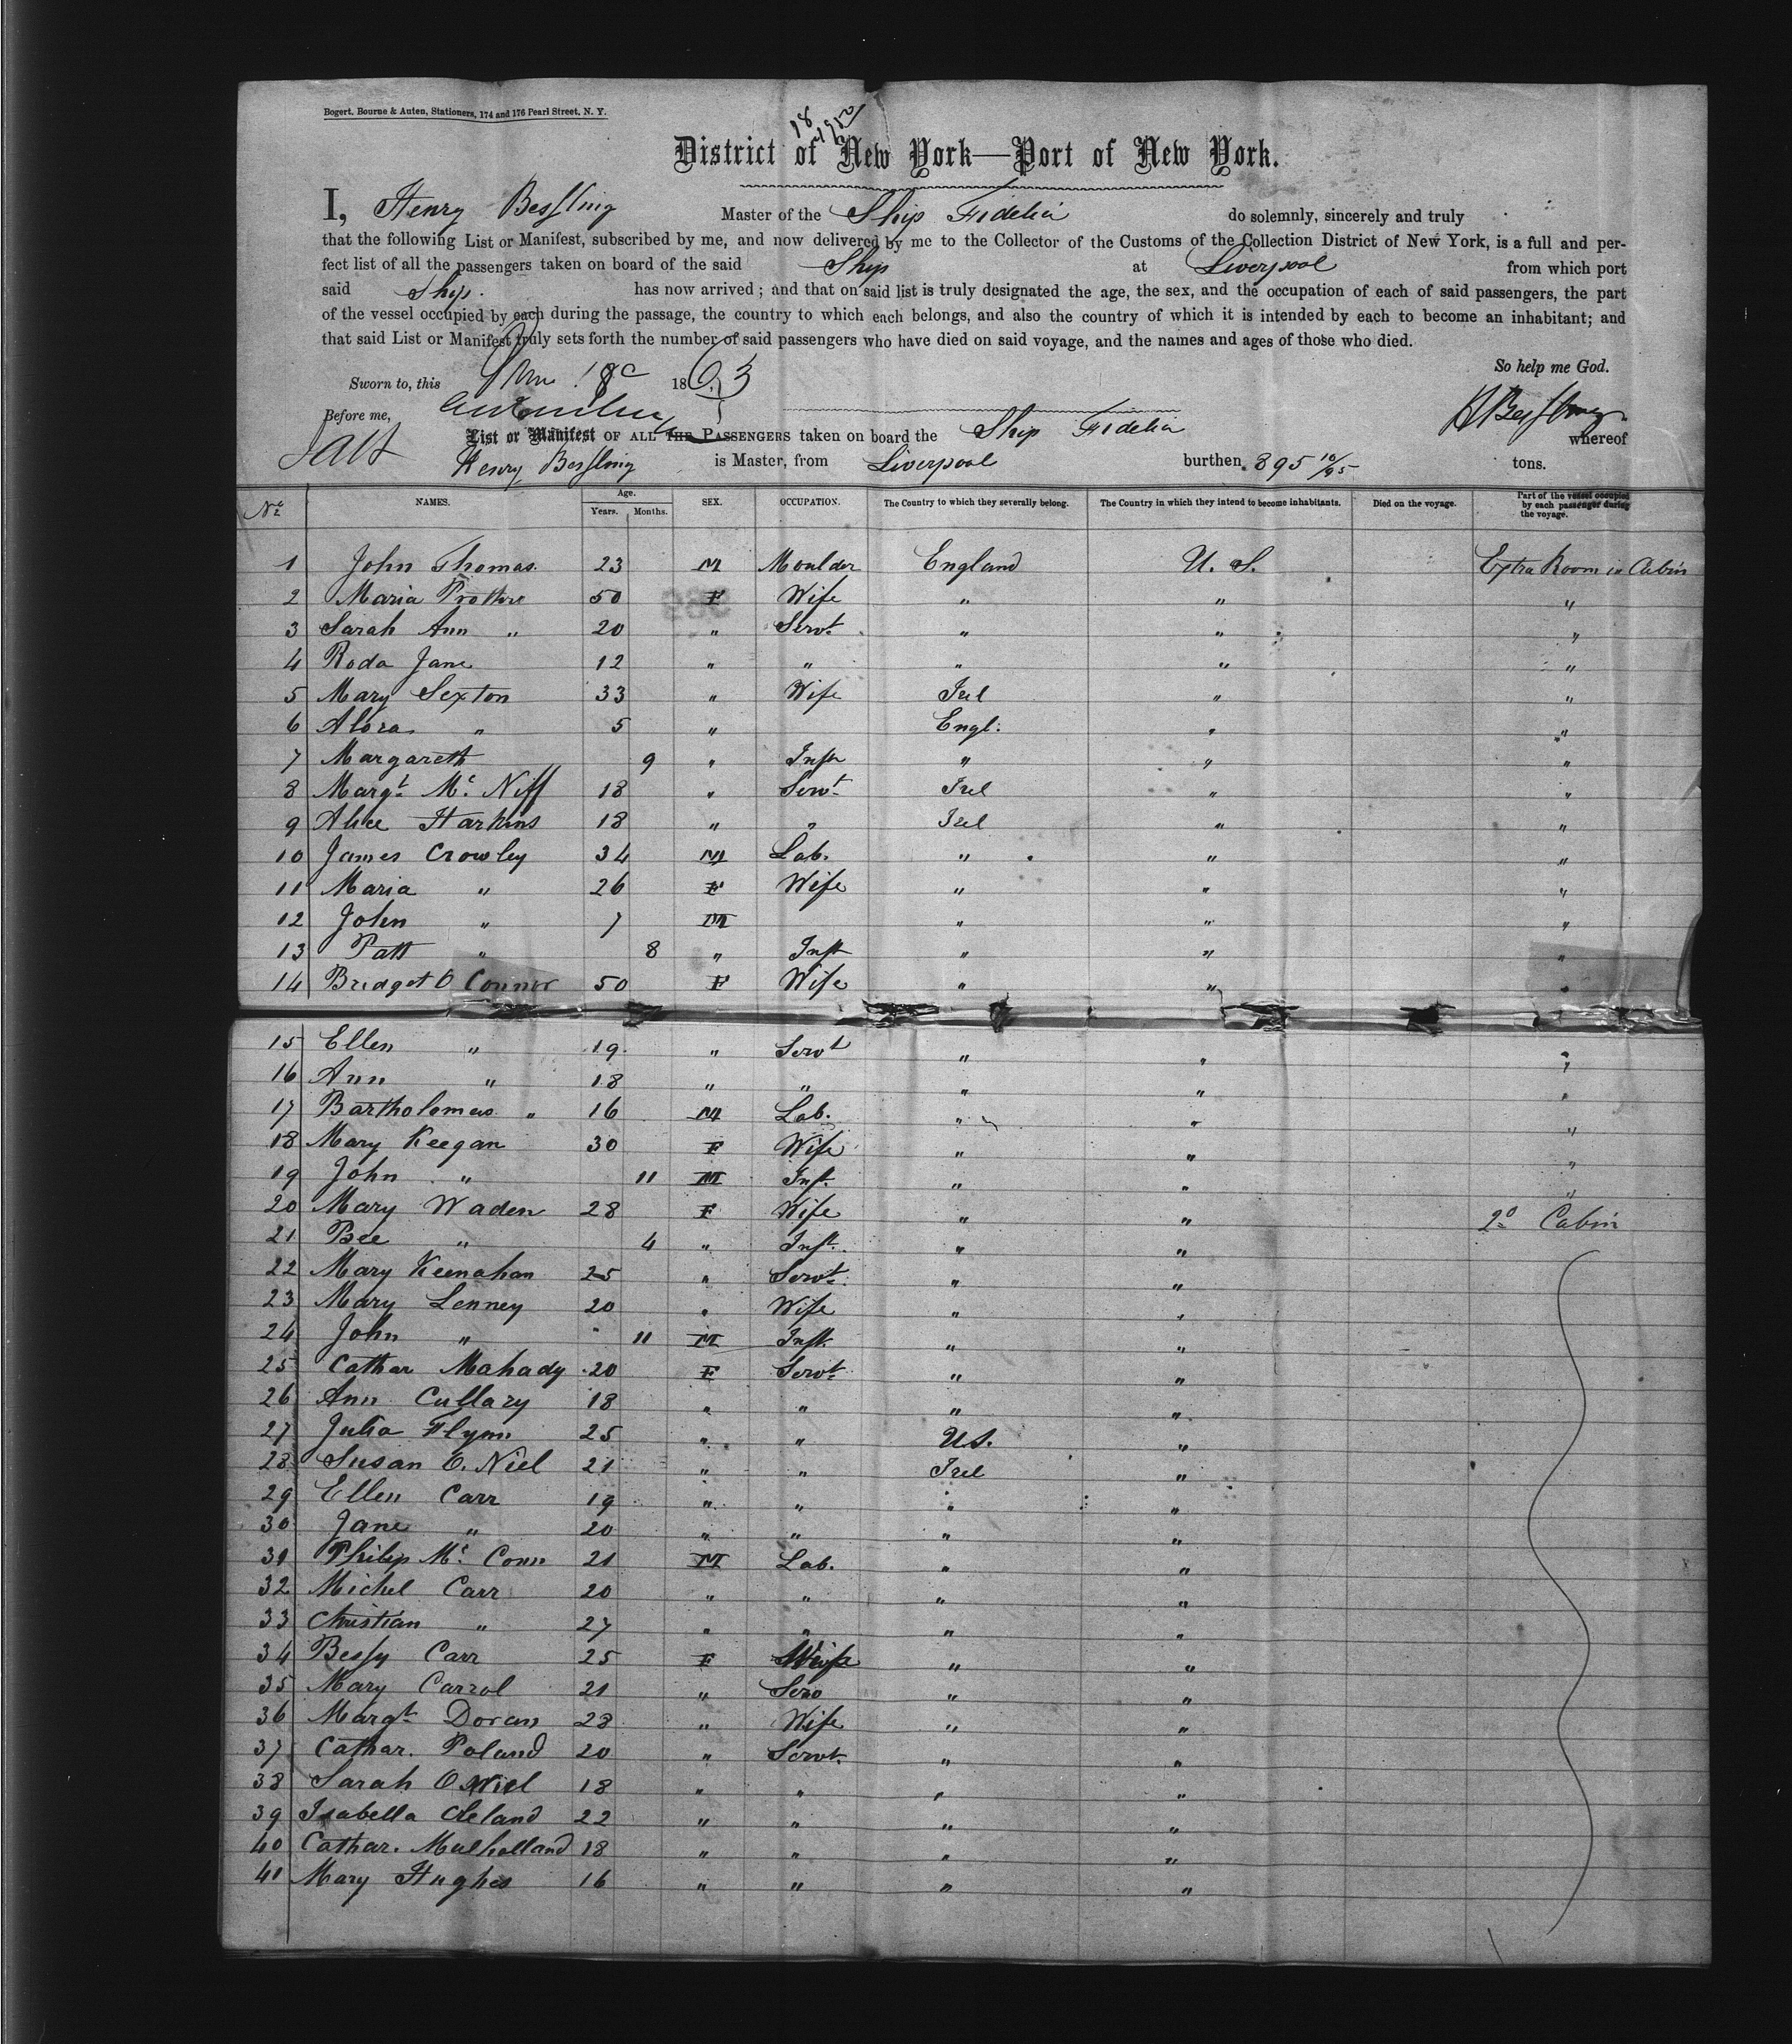 Bogert, Bourne & Auten, Stationers, 174 and 176 Pearl Street, N. Y.
District of New York—Port of New York.
I, Henry Bessling Master of the Ship Fidelia do solemnly, sincerely and truly
that the following List or Manifest, subscribed by me, and now delivered by me to the Collector of the Customs of the Collection District of New York, is a full and per-
fect list of all the passengers taken on board of the said Ship at Liverpool from which port
said Ship. has now arrived; and that on said list is truly designated the age, the sex, and the occupation of each of said passengers, the part
of the vessel occupied by each during the passage, the country to which each belongs, and also the country of which it is intended by each to become an inhabitant; and
that said List or Manifest truly sets forth the number of said passengers who have died on said voyage, and the names and ages of those who died.
So help me God.
Sworn to, this 18 1863
Before me, H Bessling
List or Manifest OF ALL THE PASSENGERS taken on board the Ship Fidelia whereof
Henry Bessling is Master, from Liverpool burthen 895 10/95 tons.
No NAMES. Age. Years. Months. SEX. OCCUPATION. The Country to which they severally belong. The Country in which they intend to become inhabitants. Died on the voyage. Part of the vessel occupied by each passenger during the voyage.
1 John Thomas 23 M Moulder England U. S. Extra Room in Cabin
2 Maria 50 F Wife " " "
3 Sarah Ann " 20 " Servt. " " "
4 Roda Jane 12 " " " " "
5 Mary Sexton 33 " Wife Irel " "
6 " 5 " Engl. " "
7 Margareth 9 " Inft " " "
8 Margt. Mc Niff 18 " Servt. Irel " "
9 Alice Harkins 18 " " Irel " "
10 James Crowley 34 M Lab. " " "
11 Maria " 26 F Wife " " "
12 John " 7 M " " "
13 Patt " 8 " Inft " " "
14 Bridget O Connor 50 F Wife " " "
15 Ellen " 19 " Servt " " "
16 Ann " 18 " " " " "
17 Bartholomew " 16 M Lab. " " "
18 Mary Keegan 30 F Wife " " "
19 John " 11 M Inft. " " "
20 Mary Waden 28 F Wife " " 2d Cabin
21 Bee " 4 " Inft. " "
22 Mary Keenahan 25 " Servt. " "
23 Mary Lenney 20 " Wife " "
24 John " 11 M Inft. " "
25 Cathar Mahady 20 F Servt. " "
26 Ann Cullary 18 " " " "
27 Julia Flynn 25 " " U.S. "
28 Susan O. Niel 21 " " Irel "
29 Ellen Carr 19 " " " "
30 Jane " 20 " " " "
31 Philip Mc Conn 21 M Lab. " "
32 Michel Carr 20 " " " "
33 Christian " 27 " " " "
34 Bessy Carr 25 F Wife " "
35 Mary Carrol 21 " Serv " "
36 Margt. Doran 28 " Wife " "
37 Cathar. Poland 20 " Servt. " "
38 Sarah O Niel 18 " " " "
39 Isabella Cleland 22 " " " "
40 Cathar. Mulholland 18 " " " "
41 Mary Hughes 16 " " " "